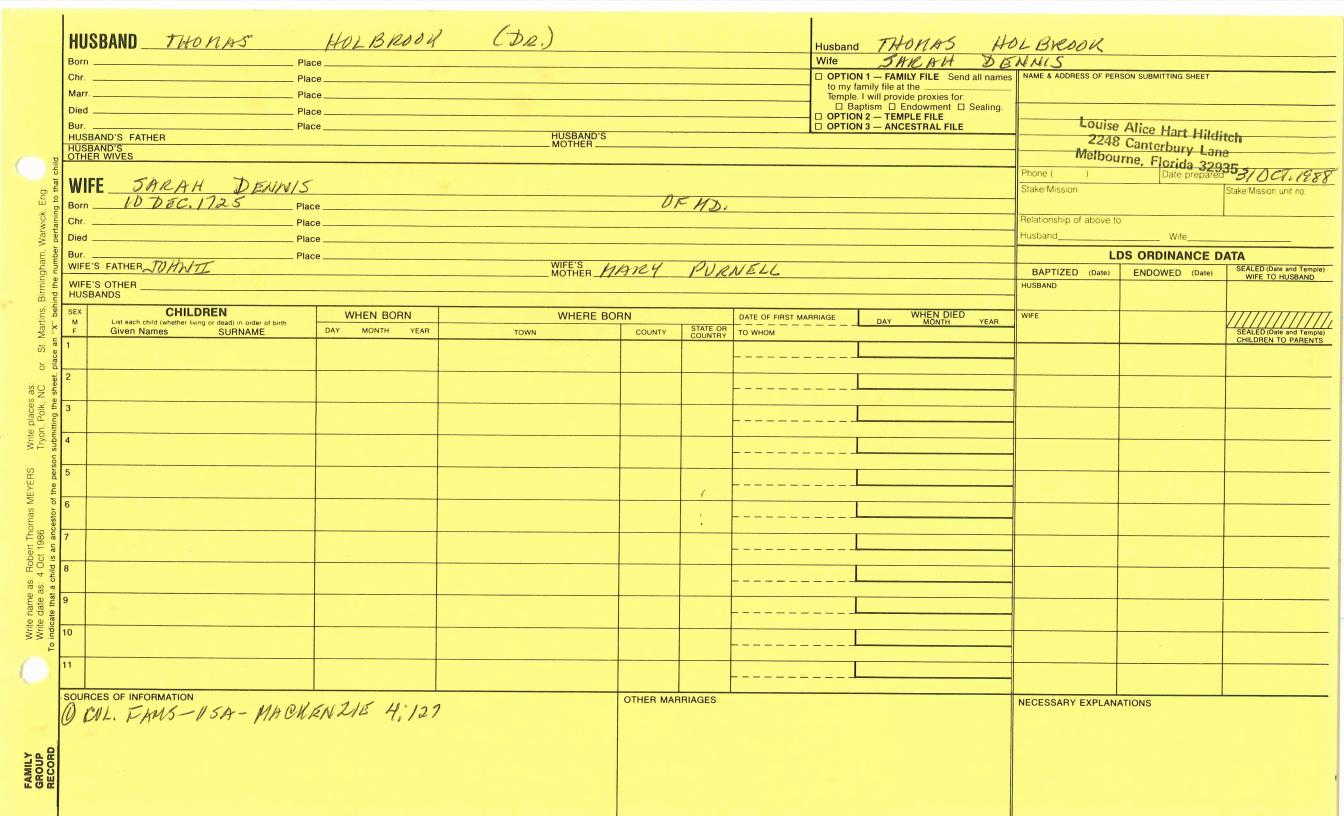 HUSBAND THOMAS HOLBROOK (DR.)
Born Place
Chr. Place
Marr. Place
Died Place
Bur. Place
HUSBAND'S FATHER HUSBAND'S MOTHER
HUSBAND'S OTHER WIVES
Husband THOMAS HOLBROOK
Wife SARAH DENNIS
☐ OPTION 1 — FAMILY FILE Send all names
to my family file at the
Temple. I will provide proxies for:
☐ Baptism ☐ Endowment ☐ Sealing.
☐ OPTION 2 — TEMPLE FILE
☐ OPTION 3 — ANCESTRAL FILE
NAME & ADDRESS OF PERSON SUBMITTING SHEET
Louise Alice Hart Hilditch
2248 Canterbury Lane
Melbourne, Florida 32935
Phone ( ) Date prepared 31 OCT. 1988
Stake/Mission Stake/Mission unit no.
Relationship of above to
Husband Wife
WIFE SARAH DENNIS
Born 10 DEC. 1725 Place OF MD.
Chr. Place
Died Place
Bur. Place
WIFE'S FATHER JOHN II WIFE'S MOTHER MARY PURNELL
WIFE'S OTHER HUSBANDS
LDS ORDINANCE DATA
BAPTIZED (Date) ENDOWED (Date) SEALED (Date and Temple) WIFE TO HUSBAND
HUSBAND
WIFE
SEALED (Date and Temple) CHILDREN TO PARENTS
SEX M F
CHILDREN
List each child (whether living or dead) in order of birth
Given Names SURNAME
WHEN BORN
DAY MONTH YEAR
WHERE BORN
TOWN COUNTY STATE OR COUNTRY
DATE OF FIRST MARRIAGE
TO WHOM
WHEN DIED
DAY MONTH YEAR
1
2
3
4
5
6
7
8
9
10
11
SOURCES OF INFORMATION
① COL. FAMS-USA- MACKENZIE 4:127
OTHER MARRIAGES
NECESSARY EXPLANATIONS
Write name as: Robert Thomas MEYERS Write places as: Tryon, Polk, NC or St. Martins, Birmingham, Warwick, Eng
Write date as: 4 Oct 1986
To indicate that a child is an ancestor of the person submitting the sheet, place an "X" behind the number pertaining to that child
FAMILY GROUP RECORD